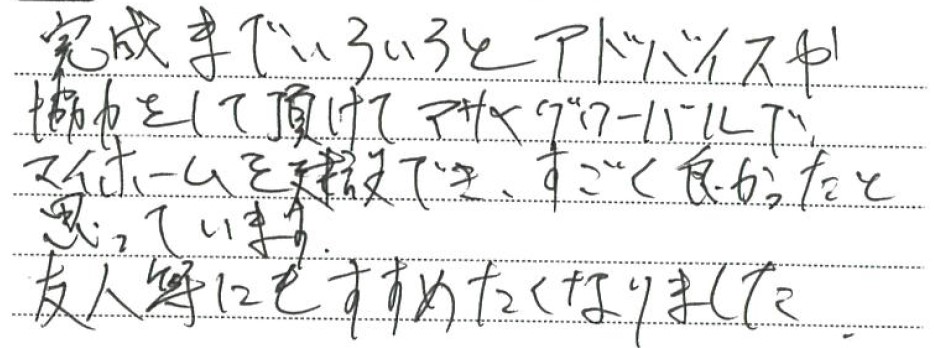 完成までいろいろとアドバイスや
協力をして頂けてアサヒグローバルで、
マイホームを建設でき、すごく良かったと
思っています。
友人等にもすすめたくなりました。